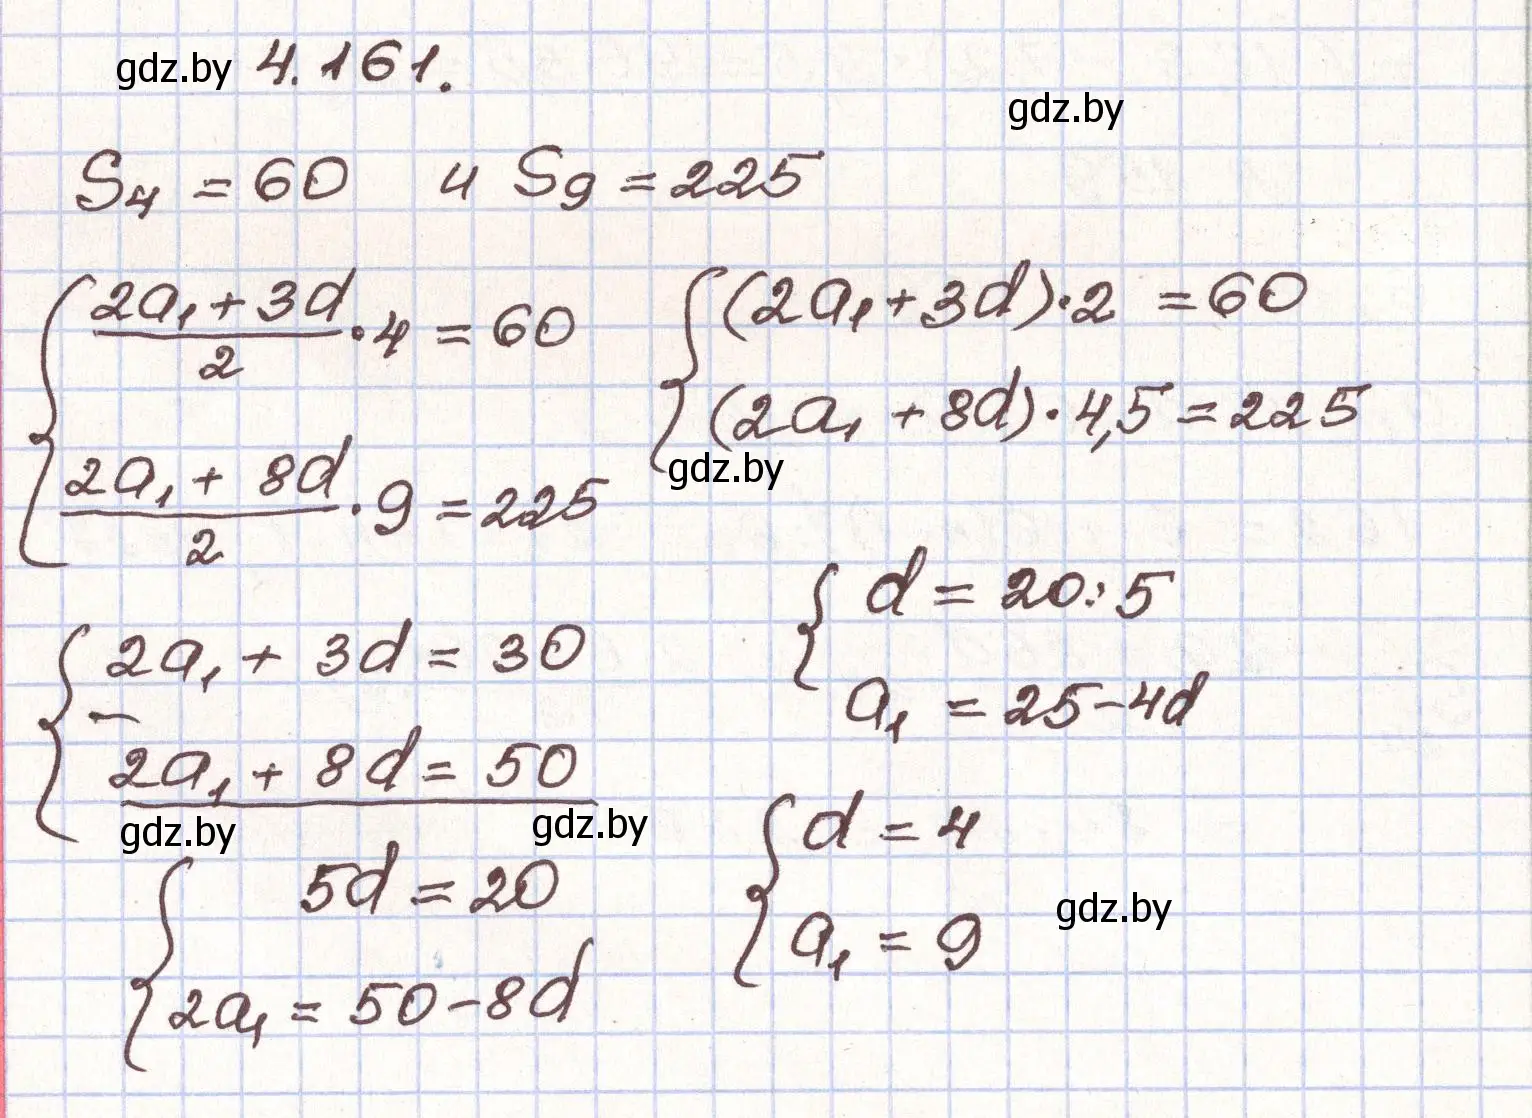 gdz.by 4.161.
gdz.by
S₄ = 60 и S₉ = 225
(2a₁ + 3d)/2 · 4 = 60
(2a₁ + 8d)/2 · 9 = 225
(2a₁ + 3d) · 2 = 60
(2a₁ + 8d) · 4,5 = 225
gdz.by
2a₁ + 3d = 30
−
2a₁ + 8d = 50
gdz.by gdz.by
5d = 20
2a₁ = 50 − 8d
d = 20 : 5
a₁ = 25 − 4d
d = 4
a₁ = 9
gdz.by